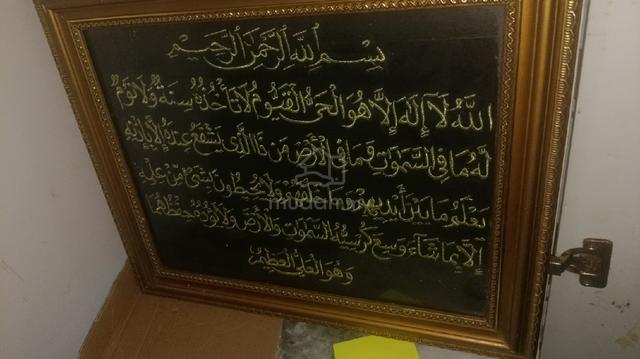 بِسْمِ اللَّهِ الرَّحْمَنِ الرَّحِيمِ
اللَّهُ لَا إِلَهَ إِلَّا هُوَ الْحَيُّ الْقَيُّومُ لَا تَأْخُذُهُ سِنَةٌ وَلَا نَوْمٌ
لَّهُ مَا فِي السَّمَوَتِ وَمَا فِي الْأَرْضِ مَن ذَا الَّذِي يَشْفَعُ عِندَهُ إِلَّا بِإِذْنِهِ
يَعْلَمُ مَا بَيْنَ أَيْدِيهِمْ وَلَا يُحِيطُونَ بِشَيْءٍ مِّنْ عِلْمِهِ
إِلَّا بِمَا شَاءَ وَسِعَ كُرْسِيُّهُ السَّمَوَتِ وَالْأَرْضَ وَلَا يَؤُدُهُ حِفْظُهُمَا
وَهُوَ الْعَلِيُّ الْعَظِيمُ
mudah.my